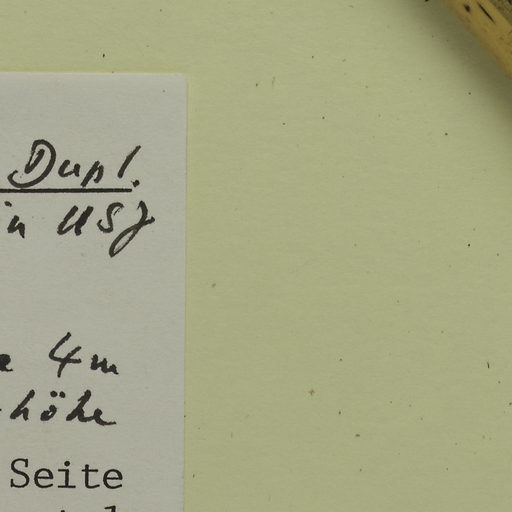 Dupl.
in USJ
4m
höhe
Seite